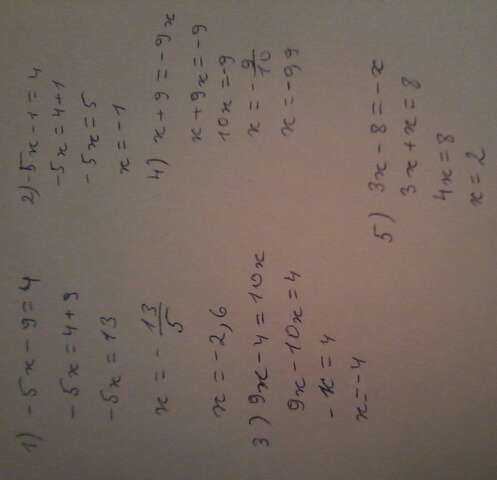 1) -5x-9=4
-5x=4+9
-5x=13
x=-13/5
x=-2,6
2) -5x-1=4
-5x=4+1
-5x=5
x=-1
3) 9x-4=10x
9x-10x=4
-x=4
x=-4
4) x+9=-9x
x+9x=-9
10x=-9
x=-9/10
x=-9,9
5) 3x-8=-x
3x+x=8
4x=8
x=2